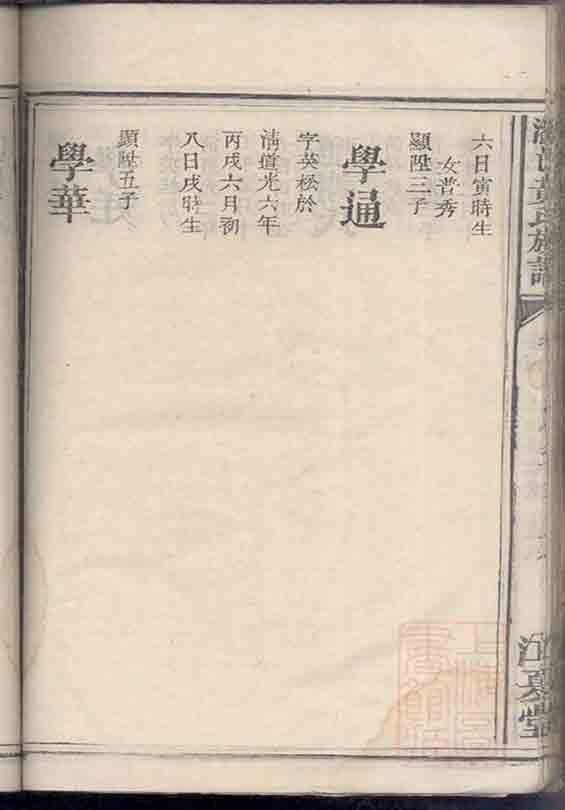 六日寅時生
女普秀
顯陞三子
學通
字英松於
清道光六年
丙戌六月初
八日戌時生
顯陞五子
學華
黃氏族譜
江夏堂
上海圖書館藏